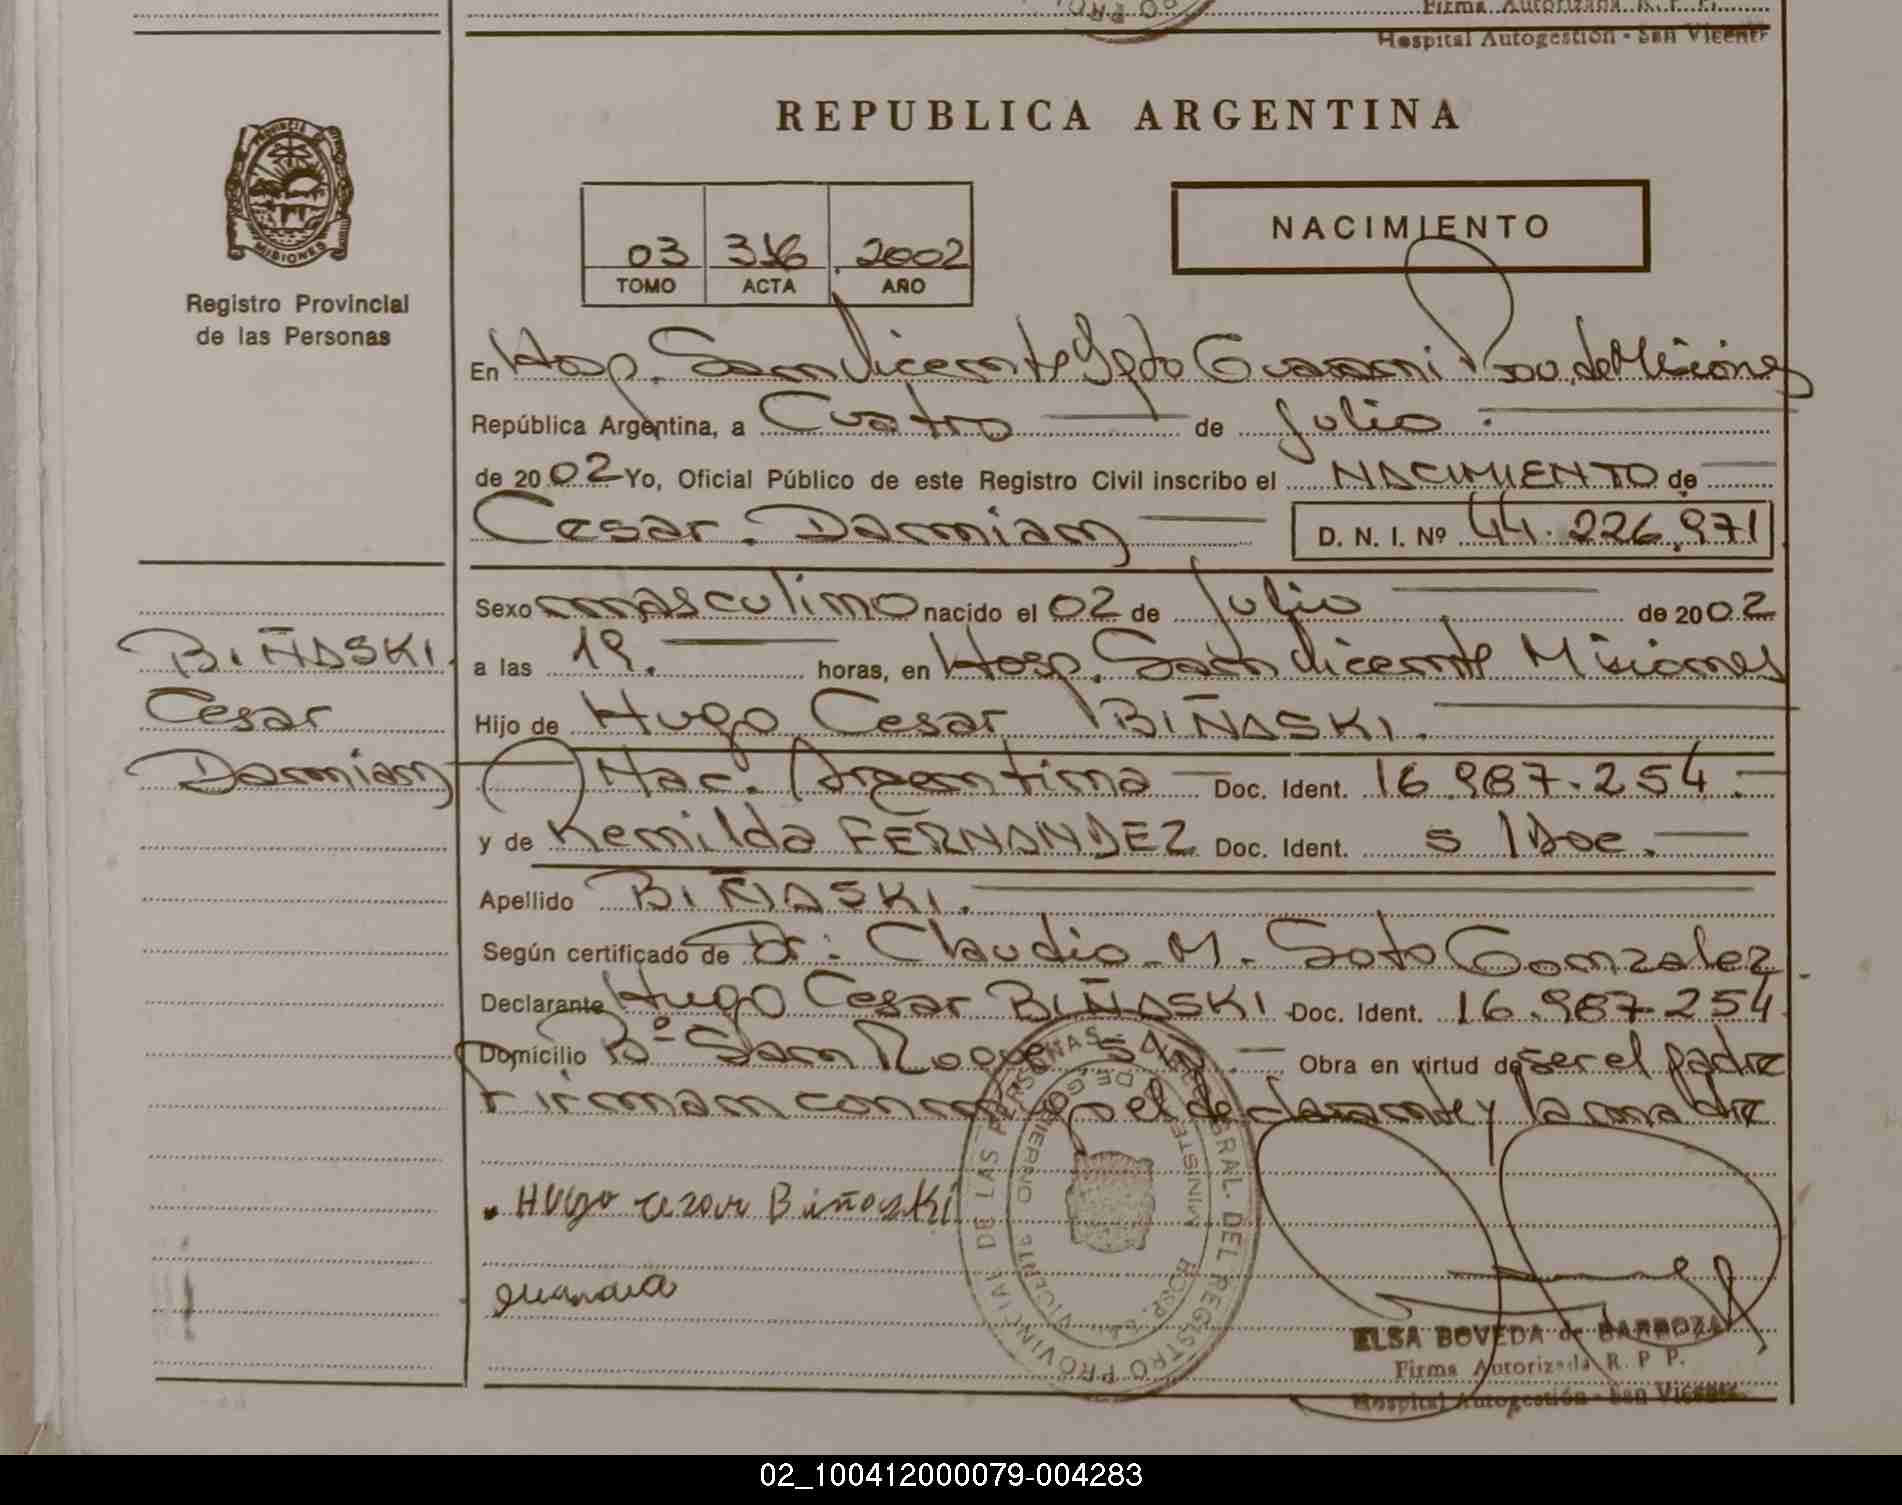 Firma Autorizada R. P. P.
Hospital Autogestión - San Vicente
PROVINCIA DE
MISIONES
Registro Provincial
de las Personas
REPUBLICA ARGENTINA
03 316 2002
TOMO ACTA AÑO
NACIMIENTO
En Hosp. San Vicente Dpto Guarani Prov. de Misiones
República Argentina, a Cuatro de Julio
de 2002 Yo, Oficial Público de este Registro Civil inscribo el NACIMIENTO de
Cesar Damian D. N. I. Nº 44.226.971
Sexo masculino nacido el 02 de Julio de 2002
a las 19. horas, en Hosp. San Vicente Misiones
Hijo de Hugo Cesar BIÑASKI.
Nac. Argentina Doc. Ident. 16.987.254.
y de Kemilda FERNANDEZ Doc. Ident. s/Doc.
Apellido BIÑASKI.
Según certificado de Dr: Claudio M. Soto Gonzalez
Declarante Hugo Cesar BIÑASKI Doc. Ident. 16.987.254
Domicilio Bº San Roque S/N. Obra en virtud de ser el padre
Firman conmigo el declarante y la madre
BIÑASKI
Cesar
Damian
Hugo cesar Biñaski
GRAL. DEL REGISTRO PROVINCIAL DE LAS PERSONAS
MINISTE DE GOBIERNO
HOSP. SAN VICENTE
ELSA BOVEDA de BARBOZA
Firma Autorizada R. P P.
Hospital Autogestión - San Vicente
02_100412000079-004283